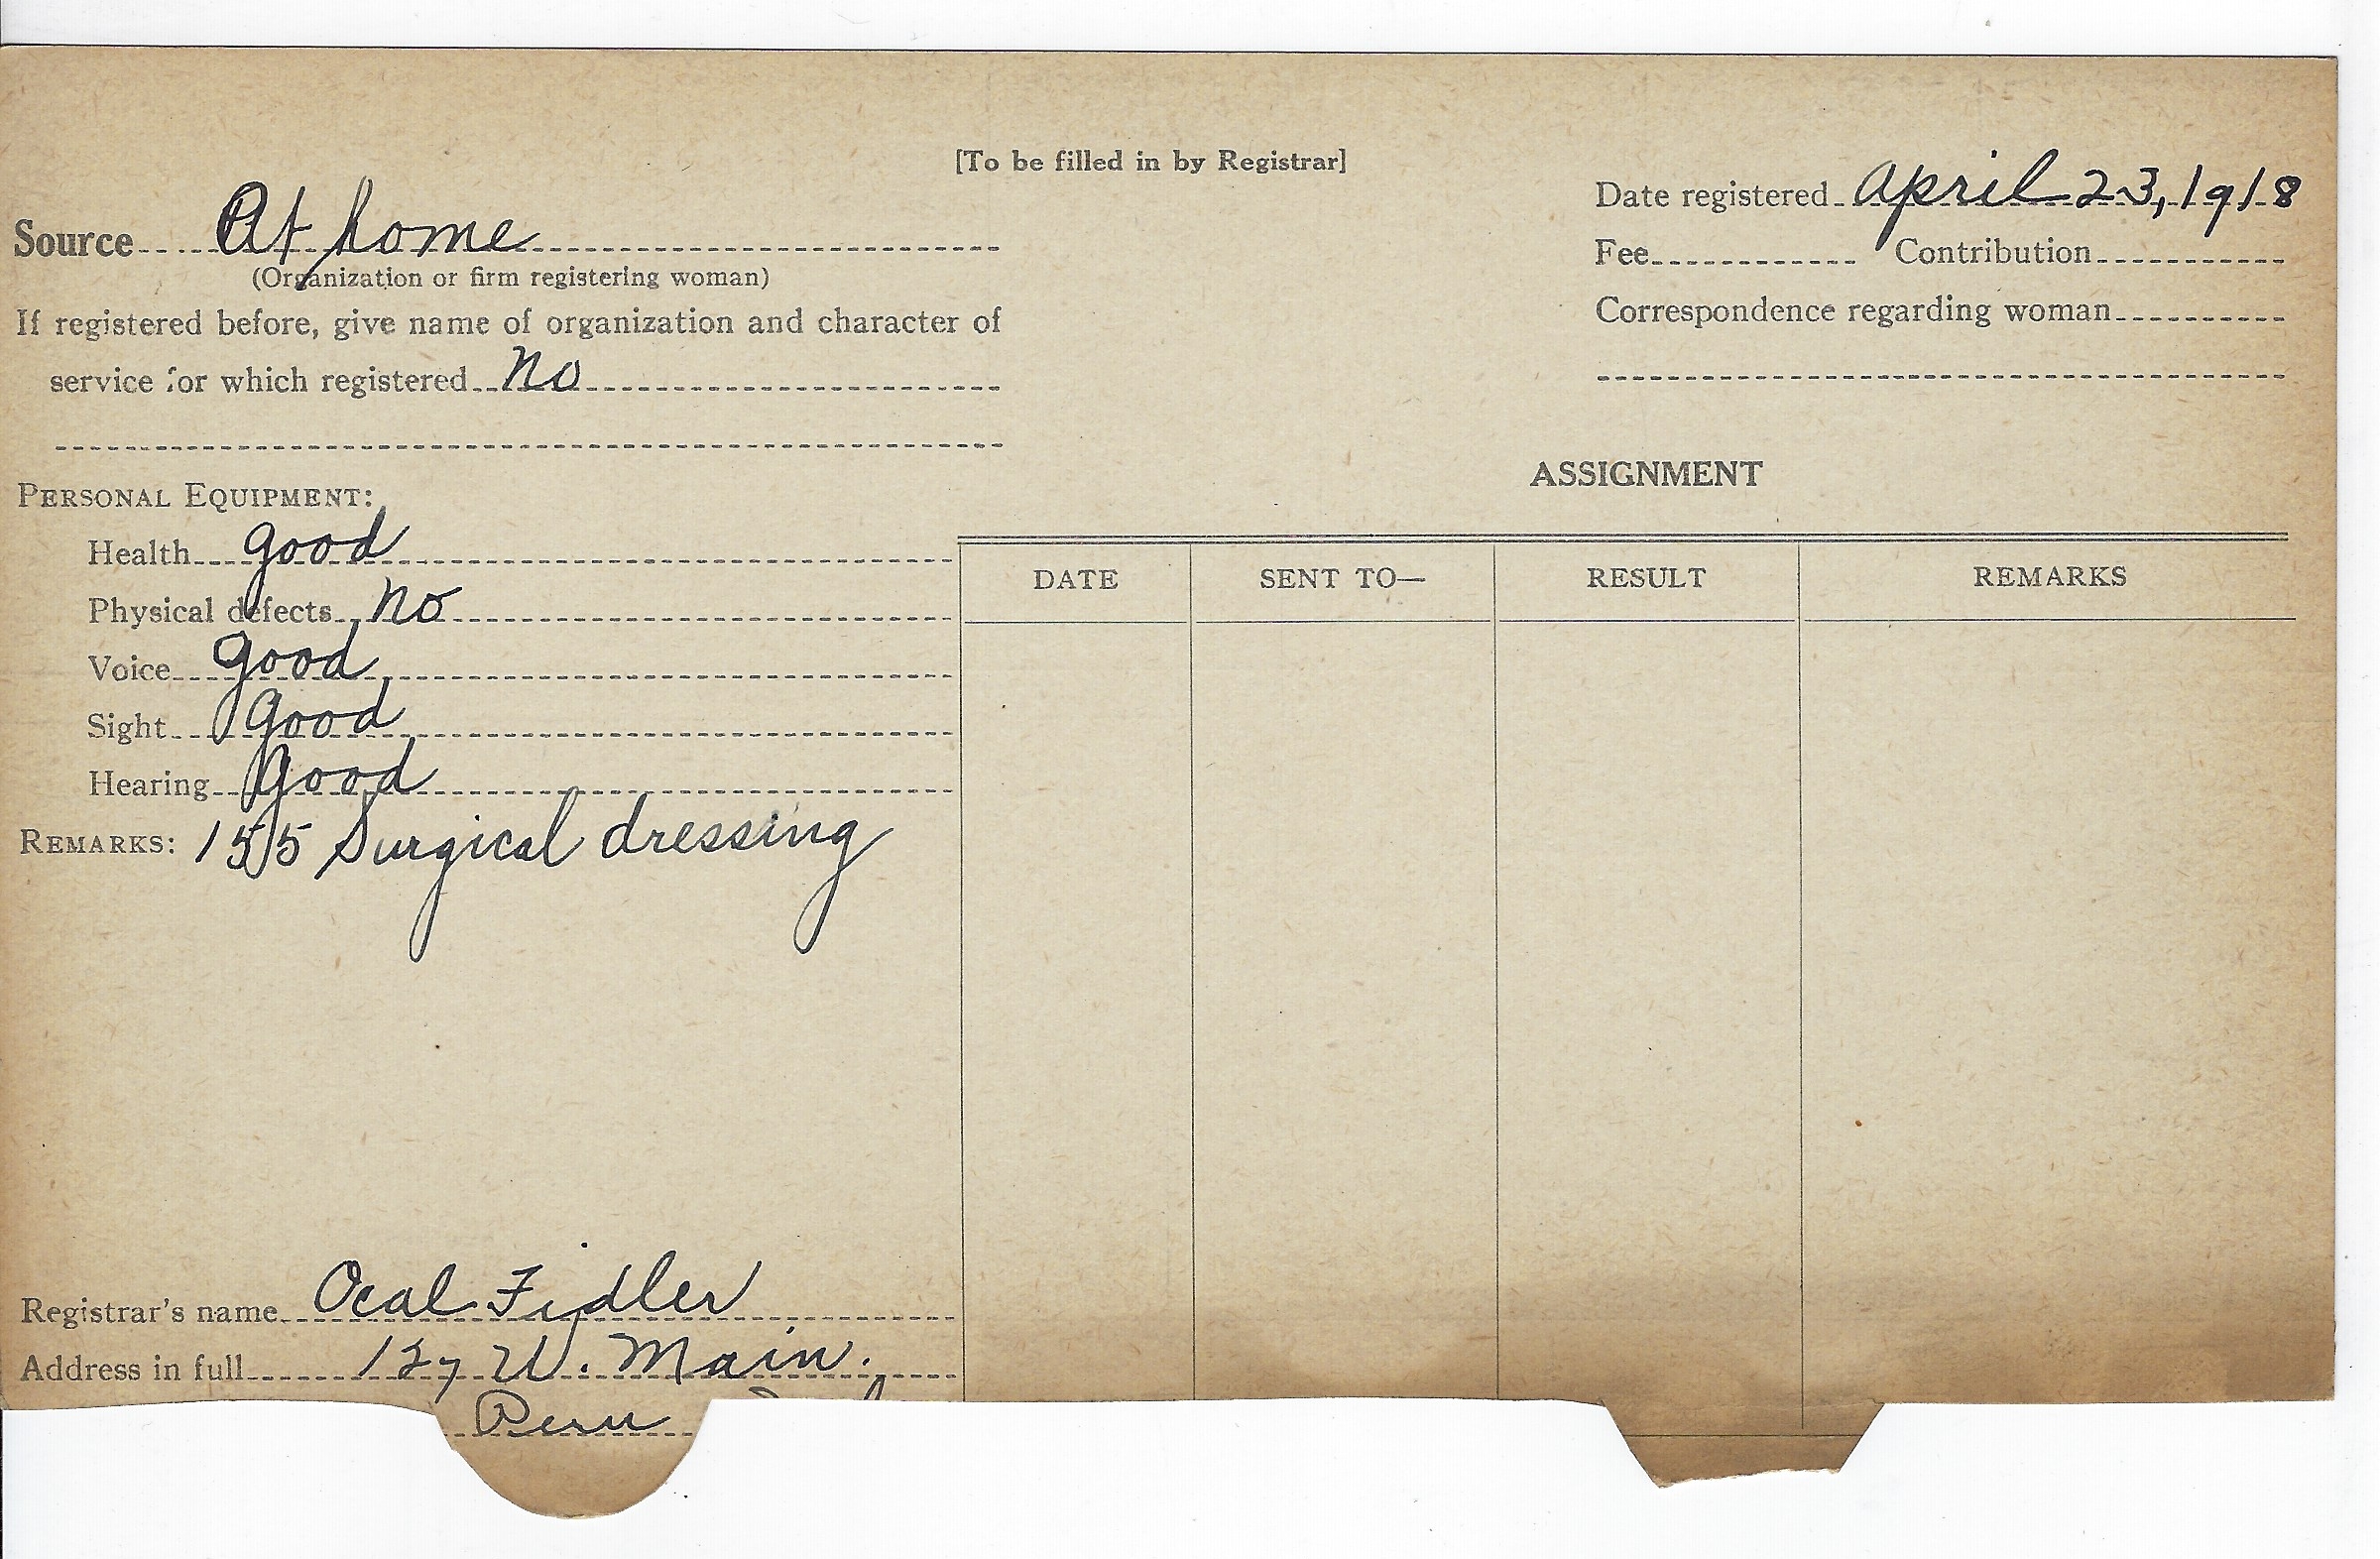 [To be filled in by Registrar]
Date registered April 23, 1918
Source At home
(Organization or firm registering woman)
Fee Contribution
If registered before, give name of organization and character of
Correspondence regarding woman
service for which registered No
ASSIGNMENT
PERSONAL EQUIPMENT:
Health good
DATE SENT TO— RESULT REMARKS
Physical defects no
Voice good
Sight good
Hearing good
REMARKS: 155 Surgical dressing
Registrar's name Ocal Fidler
Address in full 127 W. Main.
Peru